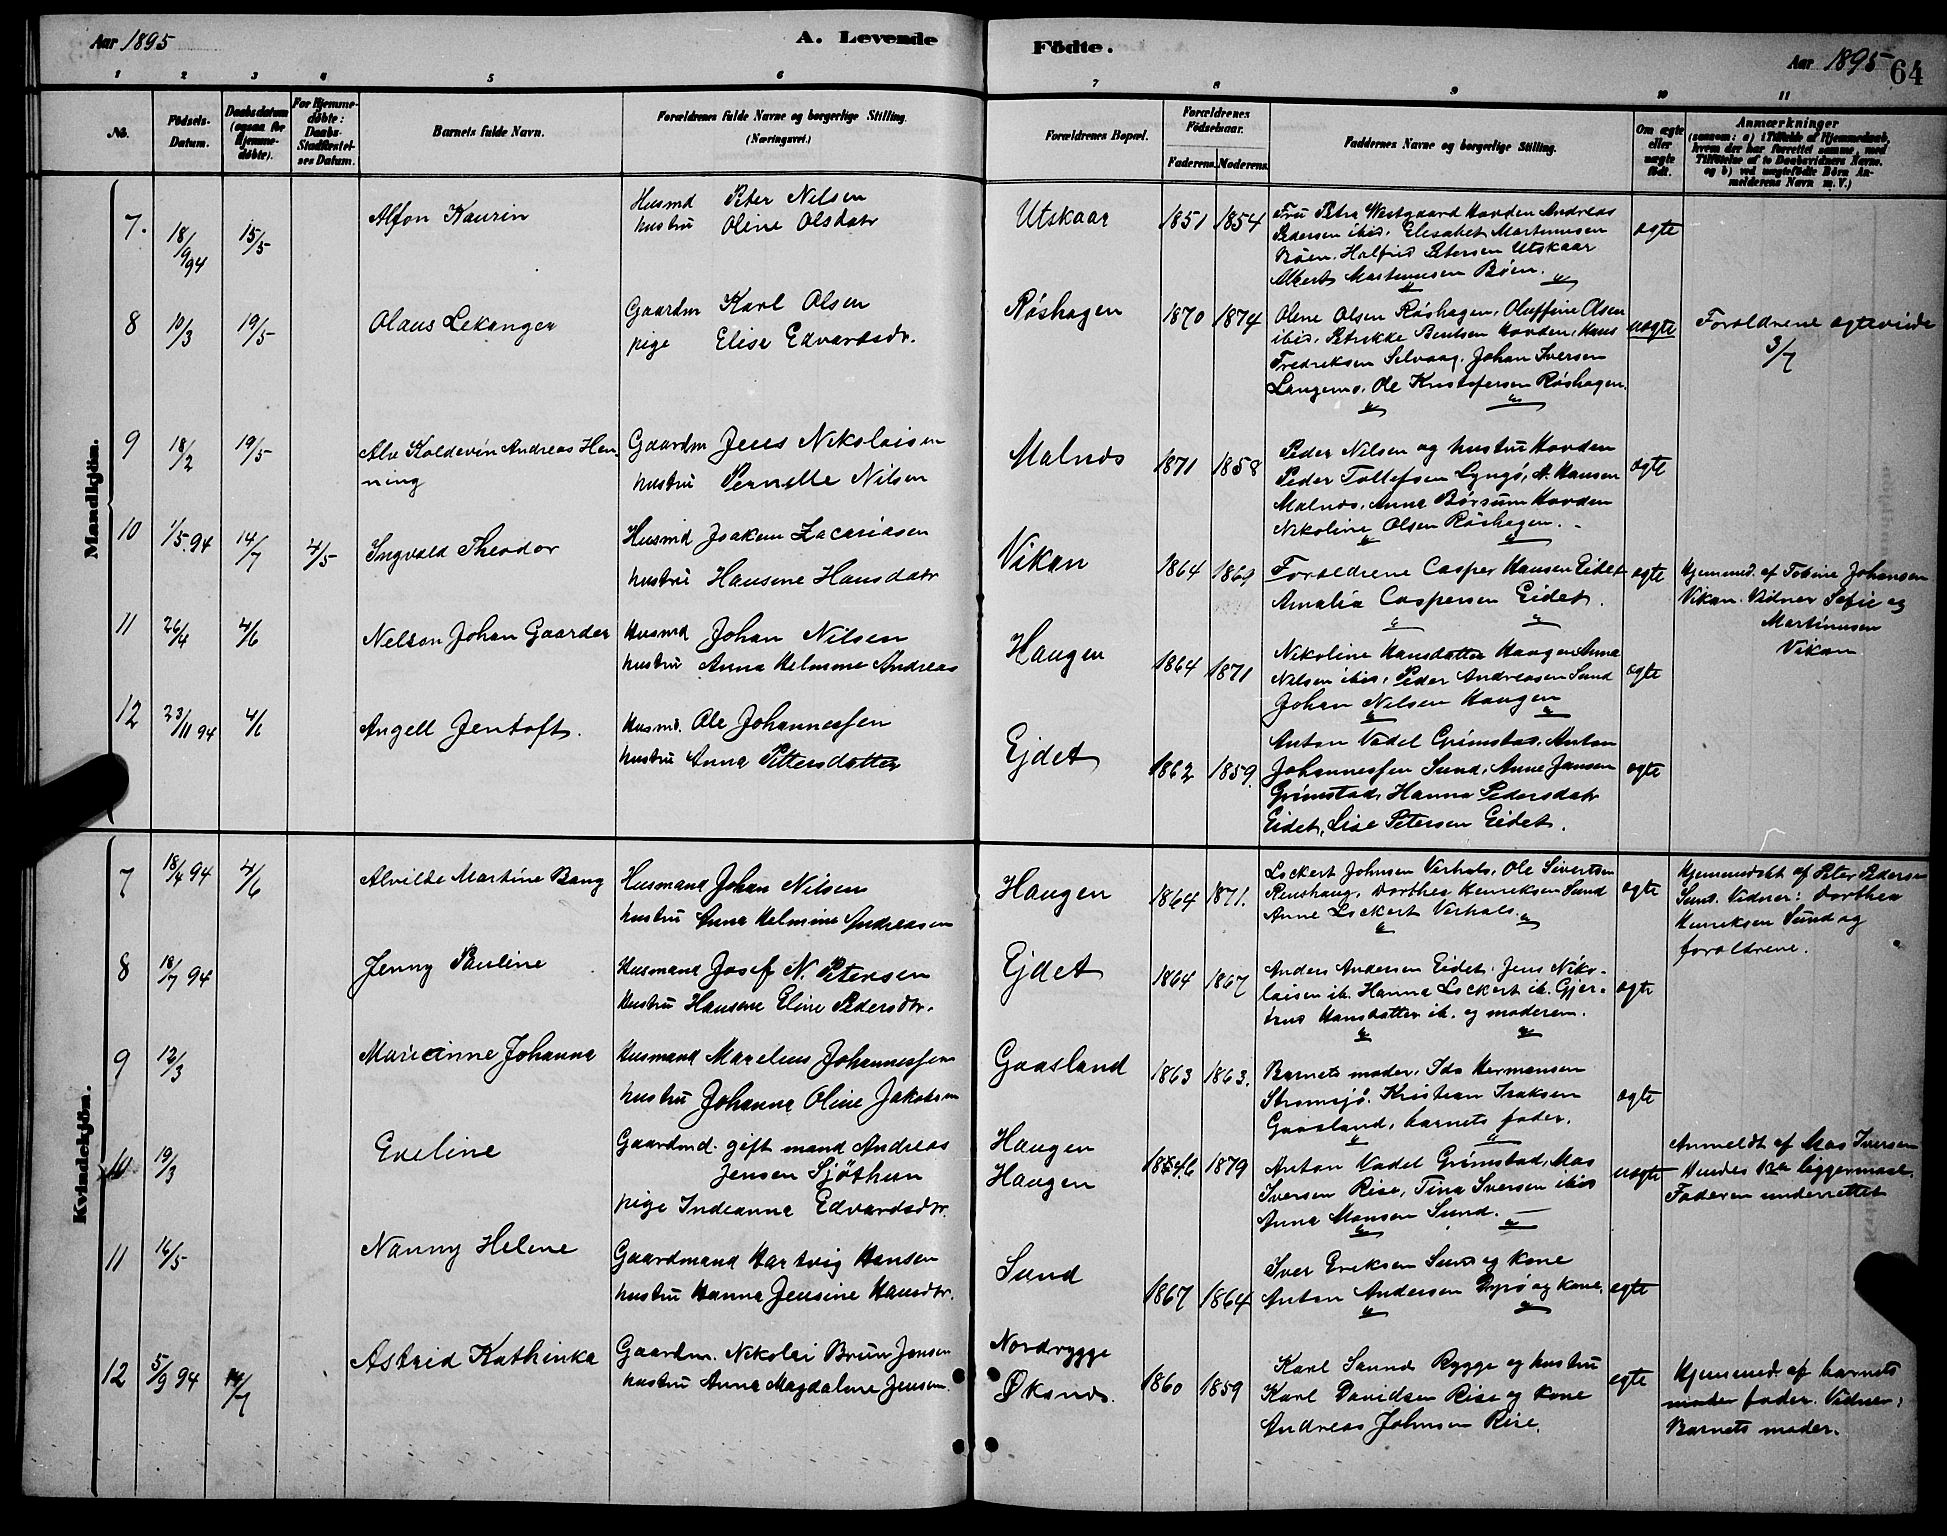 Aar 1895
A. Levende
Födte.
Aar 1895
64
1 2 3 4 5 6 7 8 9 10 11
No.
Födsels-Datum.
Daabsdatum (ogsaa for Hjemme-døbte).
For Hjemme-døbte: Daabs-Stadfæstel-ses Datum.
Barnets fulde Navn.
Forældrenes fulde Navne og borgerlige Stilling.
(Næringsvei.)
Forældrenes Bopæl.
Forældrenes Födselsaar.
Faderens. Moderens.
Faddernes Navne og borgerlige Stilling.
Om ægte eller uægte födt.
Anmærkninger
(saasom: a) i Tilfælde af Hjemmedaab, hvem der har forrettet samme, med Tilföielse af to Daabsvidners Navne. og b) ved uægtefödte Börn Anmelderens Navn m. V.)
Mandkjön.
7. 18/9 94 15/5 Alfon Kaurin
Husmd Peter Nilsen
hustru Oline Olsdatr
Utskaar 1851 1854
Fru Petra Westgaard Hovden Andreas
Pedersen ibid, Elisabet Martinusen
Böen, Halfrid Petersen Utskaar
Albert Martinusen Böen.
ægte
8 10/3 19/5 Olaus Lekanger
Gaardm Karl Olsen
pige Elise Edvardsdr.
Røshagen 1870 1874
Olene Olsen Røshagen, Oluffine Olsen
ibid, Petrikke Bentsen Hovden, Hans
Fredriksen Selvaag, Johan Iversen
Langenes, Ole Kristofersen Røshagen.
uægte
Forældrene ægteviede
3/7
9 18/2 19/5 Alv Koldevin Andreas Hen
ning
Gaardm Jens Nikolaisen
hustru Pernille Nilsen
Malnes 1871 1858
Peder Nilsen og hustru Hovden
Peder Tollefsen Lyngö, A. Hansen
Malnes, Anna Børsum Hovden
Nikoline Olsen Røshagen.
ægte
10 1/5.94 14/7 4/5 Ingvald Theodor
Husmd Joakim Zacariasen
hustru Hansine Hansdatr
Vikan 1864 1864
Forældrene Casper Hansen Eidet
Amalia Caspersen Eidet.
ægte
Hjemmed. af Tobine Johansen
Vikan. Vidner Sofie og
Martinusen
Vikan
11 26/4 4/6 Nelson Johan Gaarder
Husmd Johan Nilsen
hustru Anna Helmine Andreas
Haugen 1864 1871
Nikoline Hansdatter Haugen Anna
Nilsen ibid, Peder Andreasen Sund
Johan Nilsen Haugen
ægte
12 23/11 94 4/6 Angell Jentoft.
Husmd. Ole Johannessen
hustru Anna Pettersdatter
Ejdet 1862 1859.
Anton Vadel Grimstad, Anton
Johannessen Sund, Anne Jansen
Grimstad, Hanna Pedersdatr
Eidet, Lise Petersen Eidet.
ægte
Kvindekjön.
7 18/4 94 4/6 Alvilde Martine Bang
Husmand Johan Nilsen
hustru Anna Helmine Andreasen
Haugen 1864 1871.
Lockert Johnsen Verhals, Ole Sivertsen
Renshaug, Dorthea Henriksen Sund
Anne Lockert Verhals.
ægte
Hjemmedøbt af Peter Pedersen
Sund. Vidner: Dorthea
Henriksen Sund og
forældrene.
8 18/7 94 Jenny Pauline
Husmand Josef N. Petersen
Hustru Hansine Eline Pedersdr.
Ejdet 1864 1867
Anders Andersen Eidet, Jens Niko-
laisen ib. Hanna Lockert ib. Gjer-
trud Hansdatter ib. og moderen.
ægte
9 12/3 Marieanne Johanna
Husmand Marelius Johannessen
hustru Johanna Oline Jakobsen
Gaasland 1863 1863.
Barnets moder, Ida Hermansen
Strømsjö. Kristian Isaksen
Gaasland, barnets fader.
ægte
10 19/3 Eveline
Gaardmd. gift mand Andreas
Jensen Sjöthun
pige Indianna Edvardsdr.
Haugen
Haugen 1846 1879
Anton Vadel Grimstad, Mas
Iversen Rise, Tina Iversen ibid
Anna Monsen Sund.
uægte
Anmeldt af Mas Iversen
Hendes 1ste liggermaal.
Faderen underrettet
11 16/5 Nanny Helene
Gaardmand Hartvig Hansen
hustru Hanna Jensine Hansdr.
Sund 1867 1864
Iver Eriksen Sund og kone
Anton Andersen Dyrö og kone.
egte
12 5/9 94 14/7 Astrid Kathinka
Gaardm. Nikolai Brun Jensen
hustru Anna Magdalene Jensen.
Nordrygge
Øksnes. 1860 1859
Karl Saund Rygge og hustru
Karl Davidsen Rise og kone
Andreas Johnsen Rise.
egte
Hjemmed. af barnets
moder fader. Vidner:
Barnets moder.